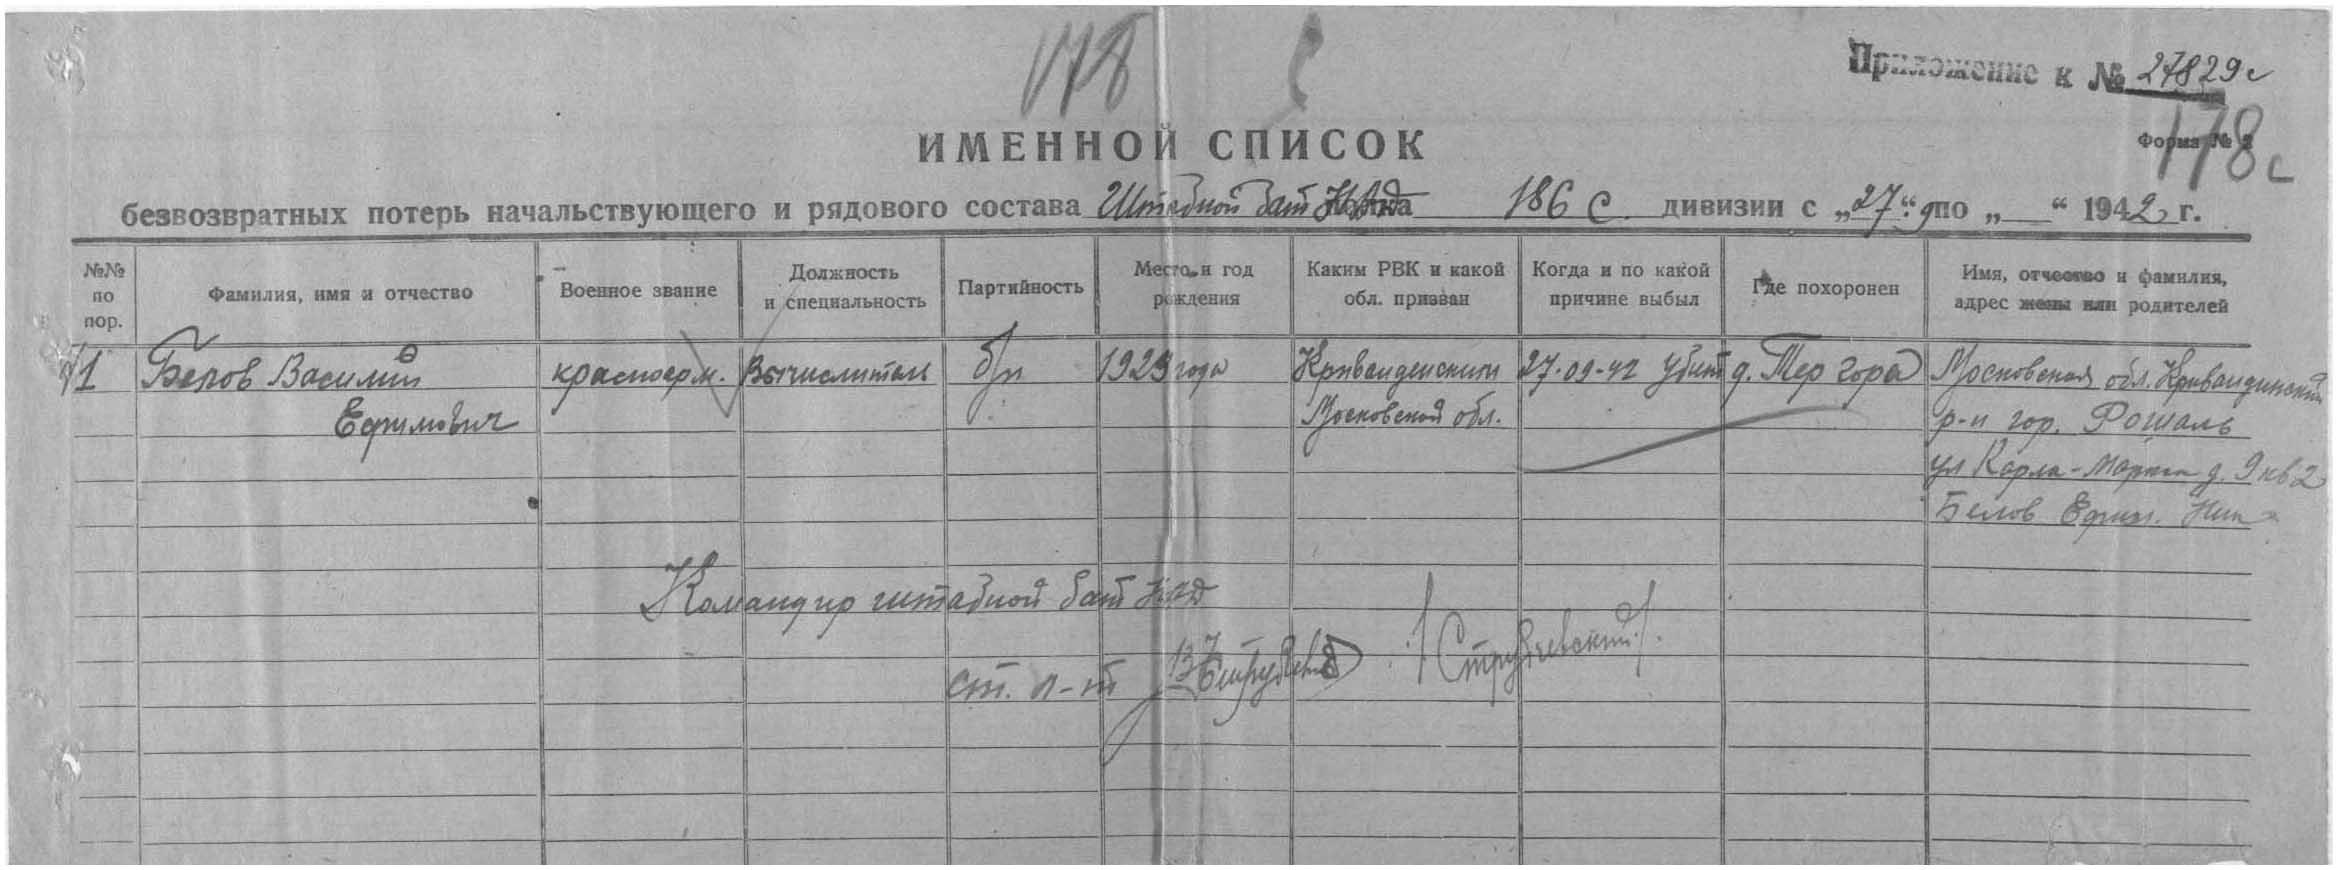 178 с
Приложение к № 27829с
178с
Форма № 2
ИМЕННОЙ СПИСОК
безвозвратных потерь начальствующего и рядового состава Штабной бат НАД полка 186 с дивизии с „27“ 9 по „__“ 1942 г.
№№ по пор.
Фамилия, имя и отчество
Военное звание
Должность и специальность
Партийность
Место и год рождения
Каким РВК и какой обл. призван
Когда и по какой причине выбыл
Где похоронен
Имя, отчество и фамилия, адрес жены или родителей
1 Белов Василий красноерм. Вычислитель б/п 1923 года Кривандинским 27-09-42 убит д. Тер гора Московская обл. Кривандинский
Ефимович Московской обл. р-н гор. Рошаль
ул Карла-Маркса д. 9 кв 2
Белов Ефим. Ник
Командир штабной бат НАД
ст. л-т /Струбчевский/.